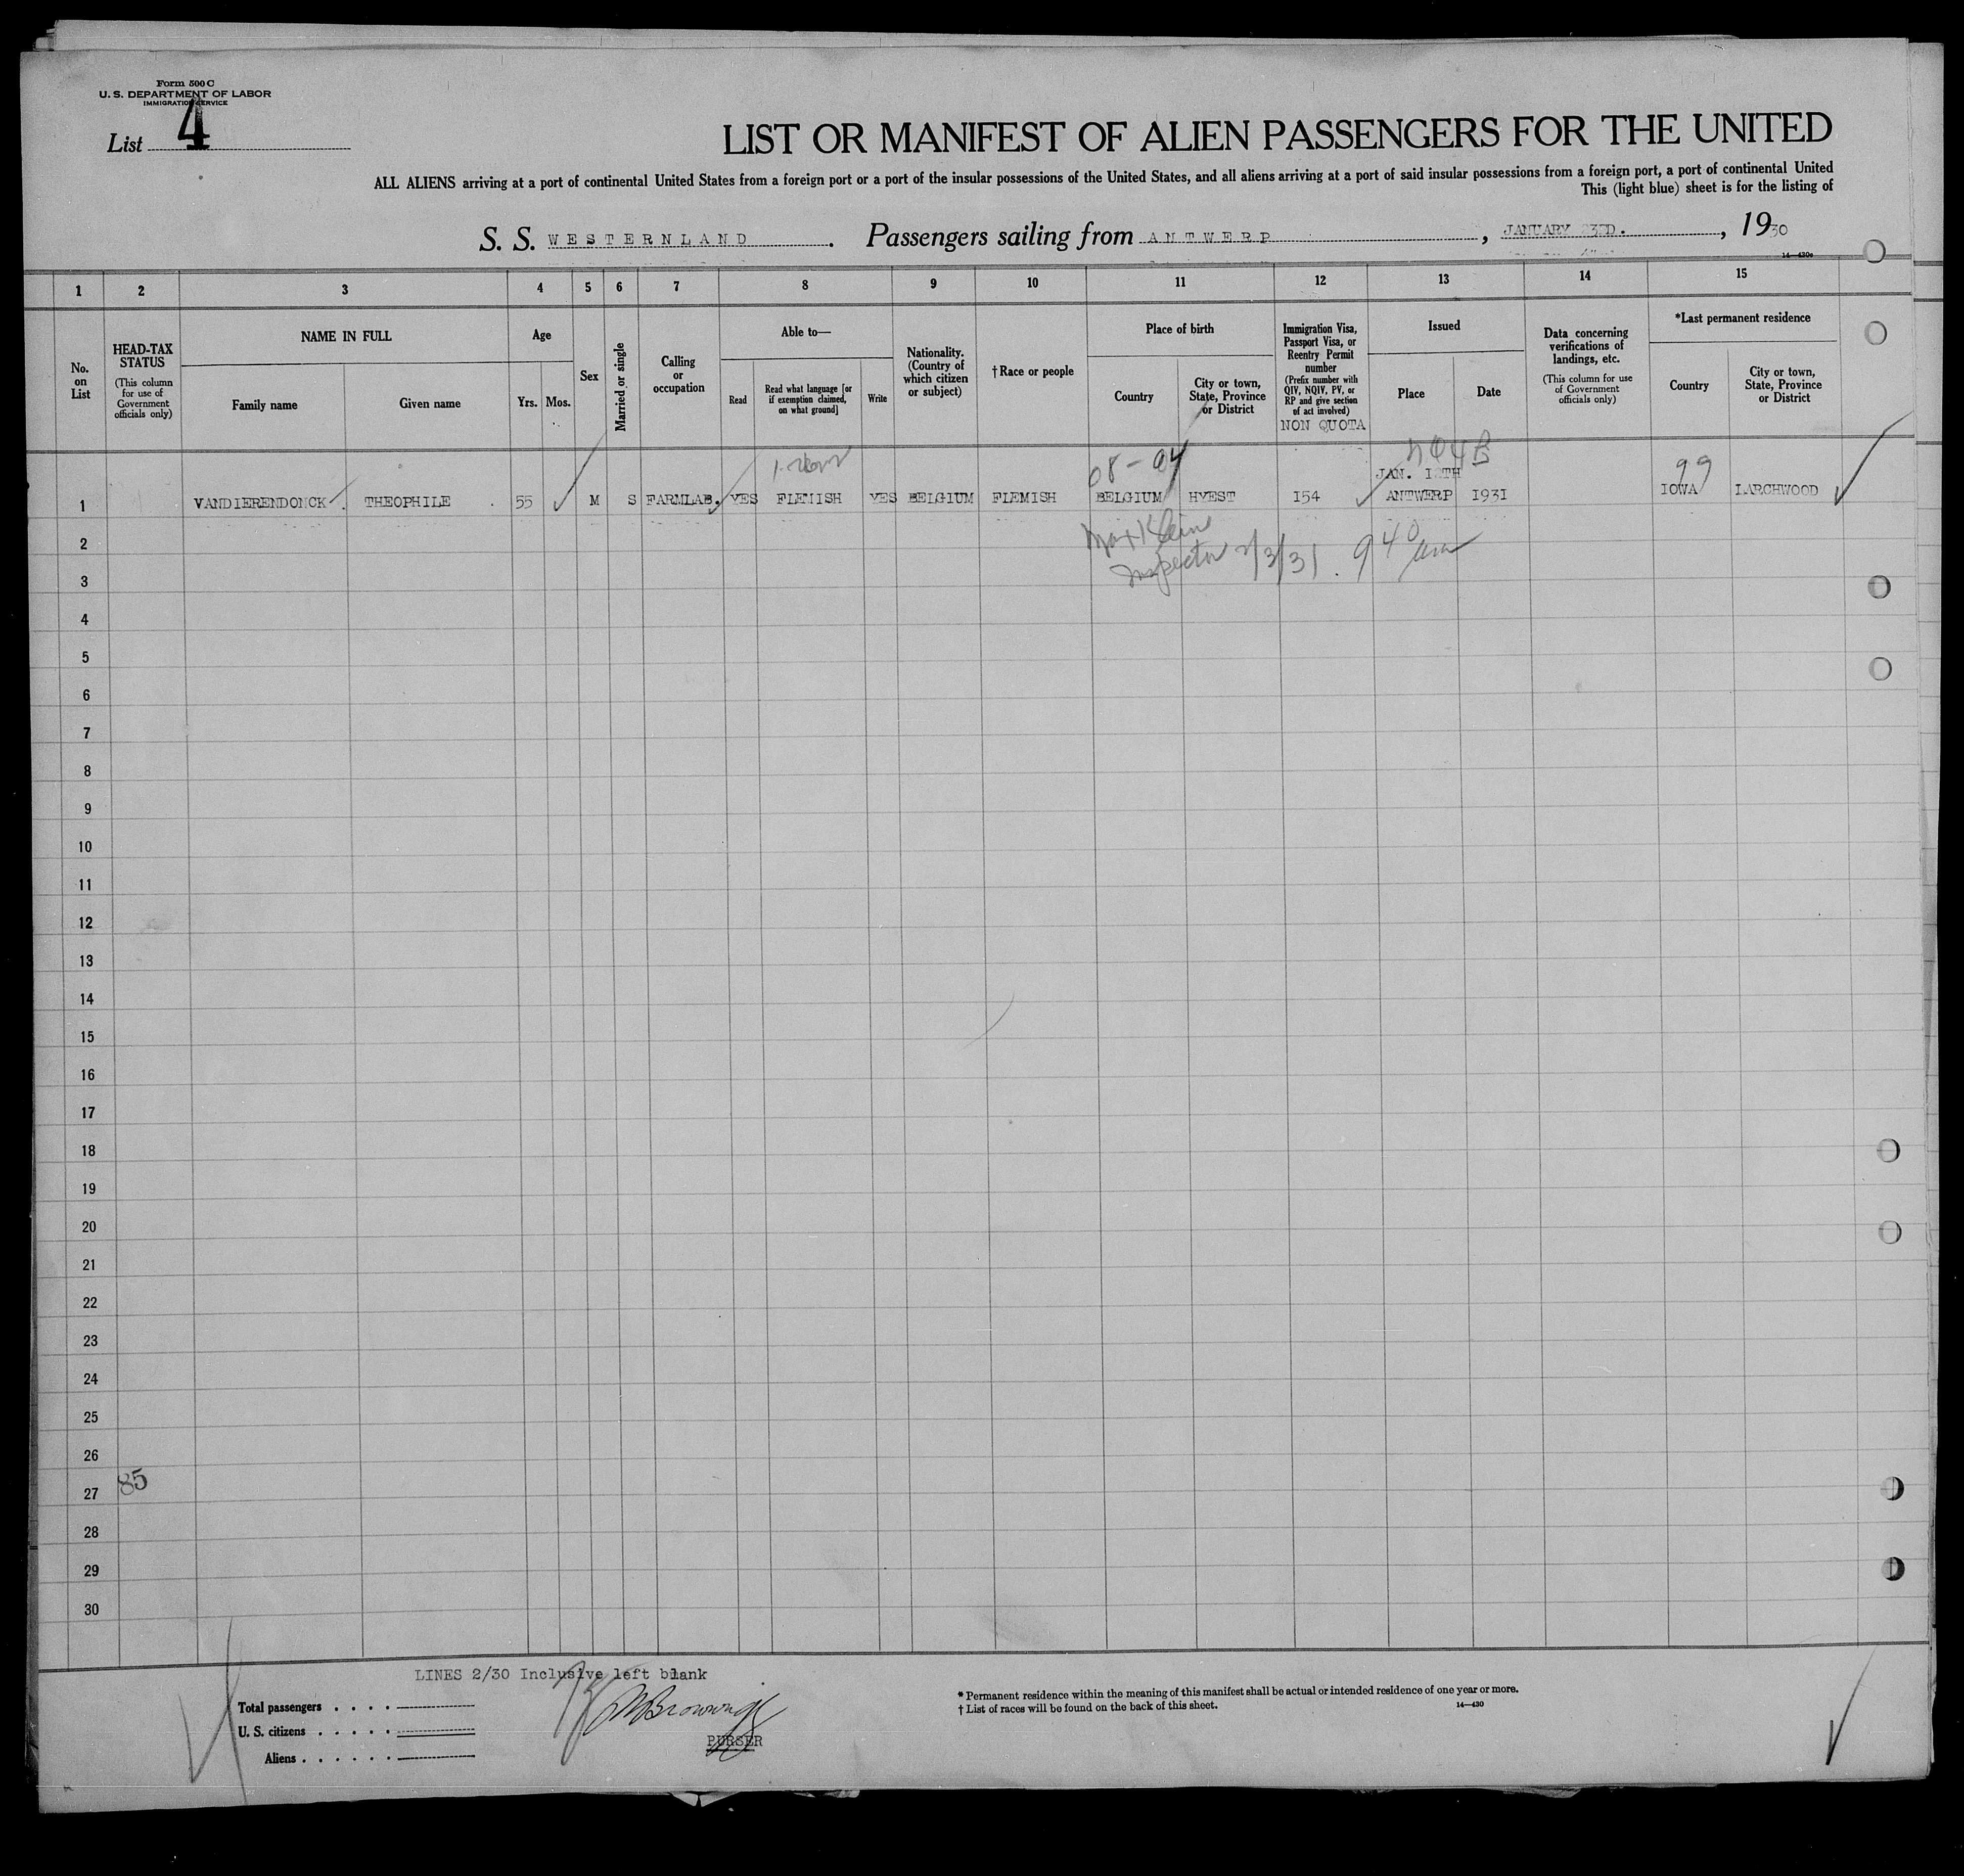 Form 500 C
U. S. DEPARTMENT OF LABOR
IMMIGRATION SERVICE
List 4
LIST OR MANIFEST OF ALIEN PASSENGERS FOR THE UNITED
ALL ALIENS arriving at a port of continental United States from a foreign port or a port of the insular possessions of the United States, and all aliens arriving at a port of said insular possessions from a foreign port, a port of continental United
This (light blue) sheet is for the listing of
S. S. WESTERNLAND. Passengers sailing from ANTWERP, JANUARY 23RD., 1930
14—430c
1 2 3 4 5 6 7 8 9 10 11 12 13 14 15
No. on List
HEAD-TAX STATUS (This column for use of Government officials only)
NAME IN FULL
Family name
Given name
Age
Yrs. Mos.
Sex
Married or single
Calling or occupation
Able to—
Read
Read what language [or if exemption claimed, on what ground]
Write
Nationality. (Country of which citizen or subject)
†Race or people
Place of birth
Country
City or town, State, Province or District
Immigration Visa, Passport Visa, or Reentry Permit number (Prefix number with QIV, NQIV, PV, or RP and give section of act involved)
NON QUOTA
Issued
Place
Date
Data concerning verifications of landings, etc. (This column for use of Government officials only)
*Last permanent residence
Country
City or town, State, Province or District
08-04
99
JAN.
1 VANDIERENDONCK THEOPHILE 55 M S FARMLAB. YES FLEMISH YES BELGIUM FLEMISH BELGIUM HYEST 154 ANTWERP 1931 IOWA LARCHWOOD
Max Klein
Inspector 2/3/31. 9 40 am
2
3
4
5
6
7
8
9
10
11
12
13
14
15
16
17
18
19
20
21
22
23
24
25
26
27 85
28
29
30
LINES 2/30 Inclusive left blank
Total passengers
U. S. citizens
Aliens
PURSER
* Permanent residence within the meaning of this manifest shall be actual or intended residence of one year or more.
† List of races will be found on the back of this sheet.
14—430